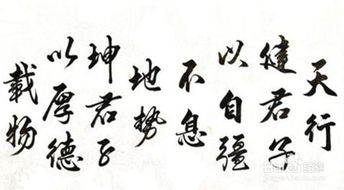 天行
健君子
以自疆
不息
地势
坤君子
以厚德
載物